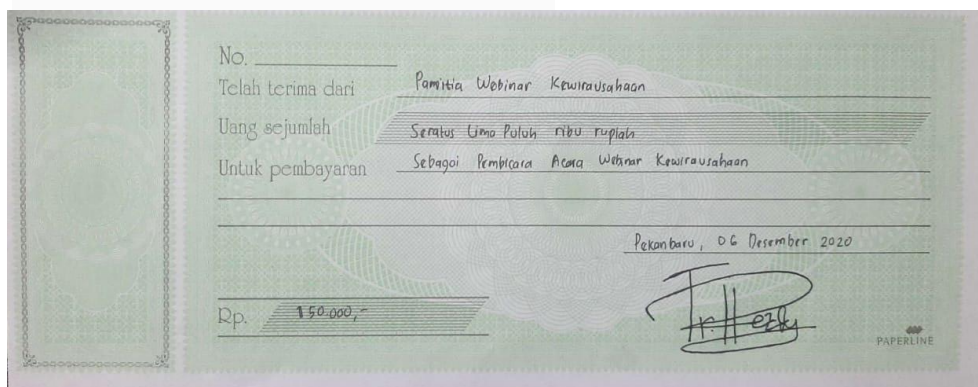 No.
Telah terima dari Panitia Webinar Kewirausahaan
Uang sejumlah Seratus Lima Puluh ribu rupiah
Untuk pembayaran Sebagai Pembicara Acara Webinar Kewirausahaan
Pekanbaru, 06 Desember 2020
Rp. 150.000,-
PAPERLINE